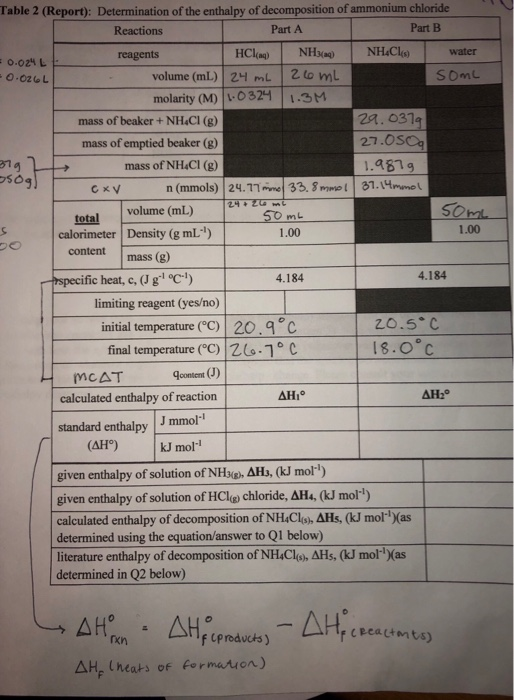 Table 2 (Report): Determination of the enthalpy of decomposition of ammonium chloride
Reactions Part A Part B
reagents HCl(aq) NH3(aq) NH4Cl(s) water
0.024 L
0.026 L
volume (mL) 24 mL 26 mL 50mL
molarity (M) 1.0324 1.3M
mass of beaker + NH4Cl (g) 29.037g
mass of emptied beaker (g) 27.050g
mass of NH4Cl (g) 1.987g
37g
050g)
C x V n (mmols) 24.77 mmol 33.8 mmol 37.14mmol
24 + 26 mL
total calorimeter content
volume (mL) 50 mL 50mL
Density (g mL-1) 1.00 1.00
mass (g)
specific heat, c, (J g-1 °C-1) 4.184 4.184
limiting reagent (yes/no)
initial temperature (°C) 20.9°C 20.5°C
final temperature (°C) 26.7°C 18.0°C
mcΔT qcontent (J)
calculated enthalpy of reaction ΔH1° ΔH2°
standard enthalpy (ΔH°)
J mmol-1
kJ mol-1
given enthalpy of solution of NH3(g), ΔH3, (kJ mol-1)
given enthalpy of solution of HCl(g) chloride, ΔH4, (kJ mol-1)
calculated enthalpy of decomposition of NH4Cl(s), ΔH5, (kJ mol-1)(as
determined using the equation/answer to Q1 below)
literature enthalpy of decomposition of NH4Cl(s), ΔH5, (kJ mol-1)(as
determined in Q2 below)
ΔH°rxn = ΔH°f (products) - ΔH°f (reactants)
ΔHf (heats of formation)